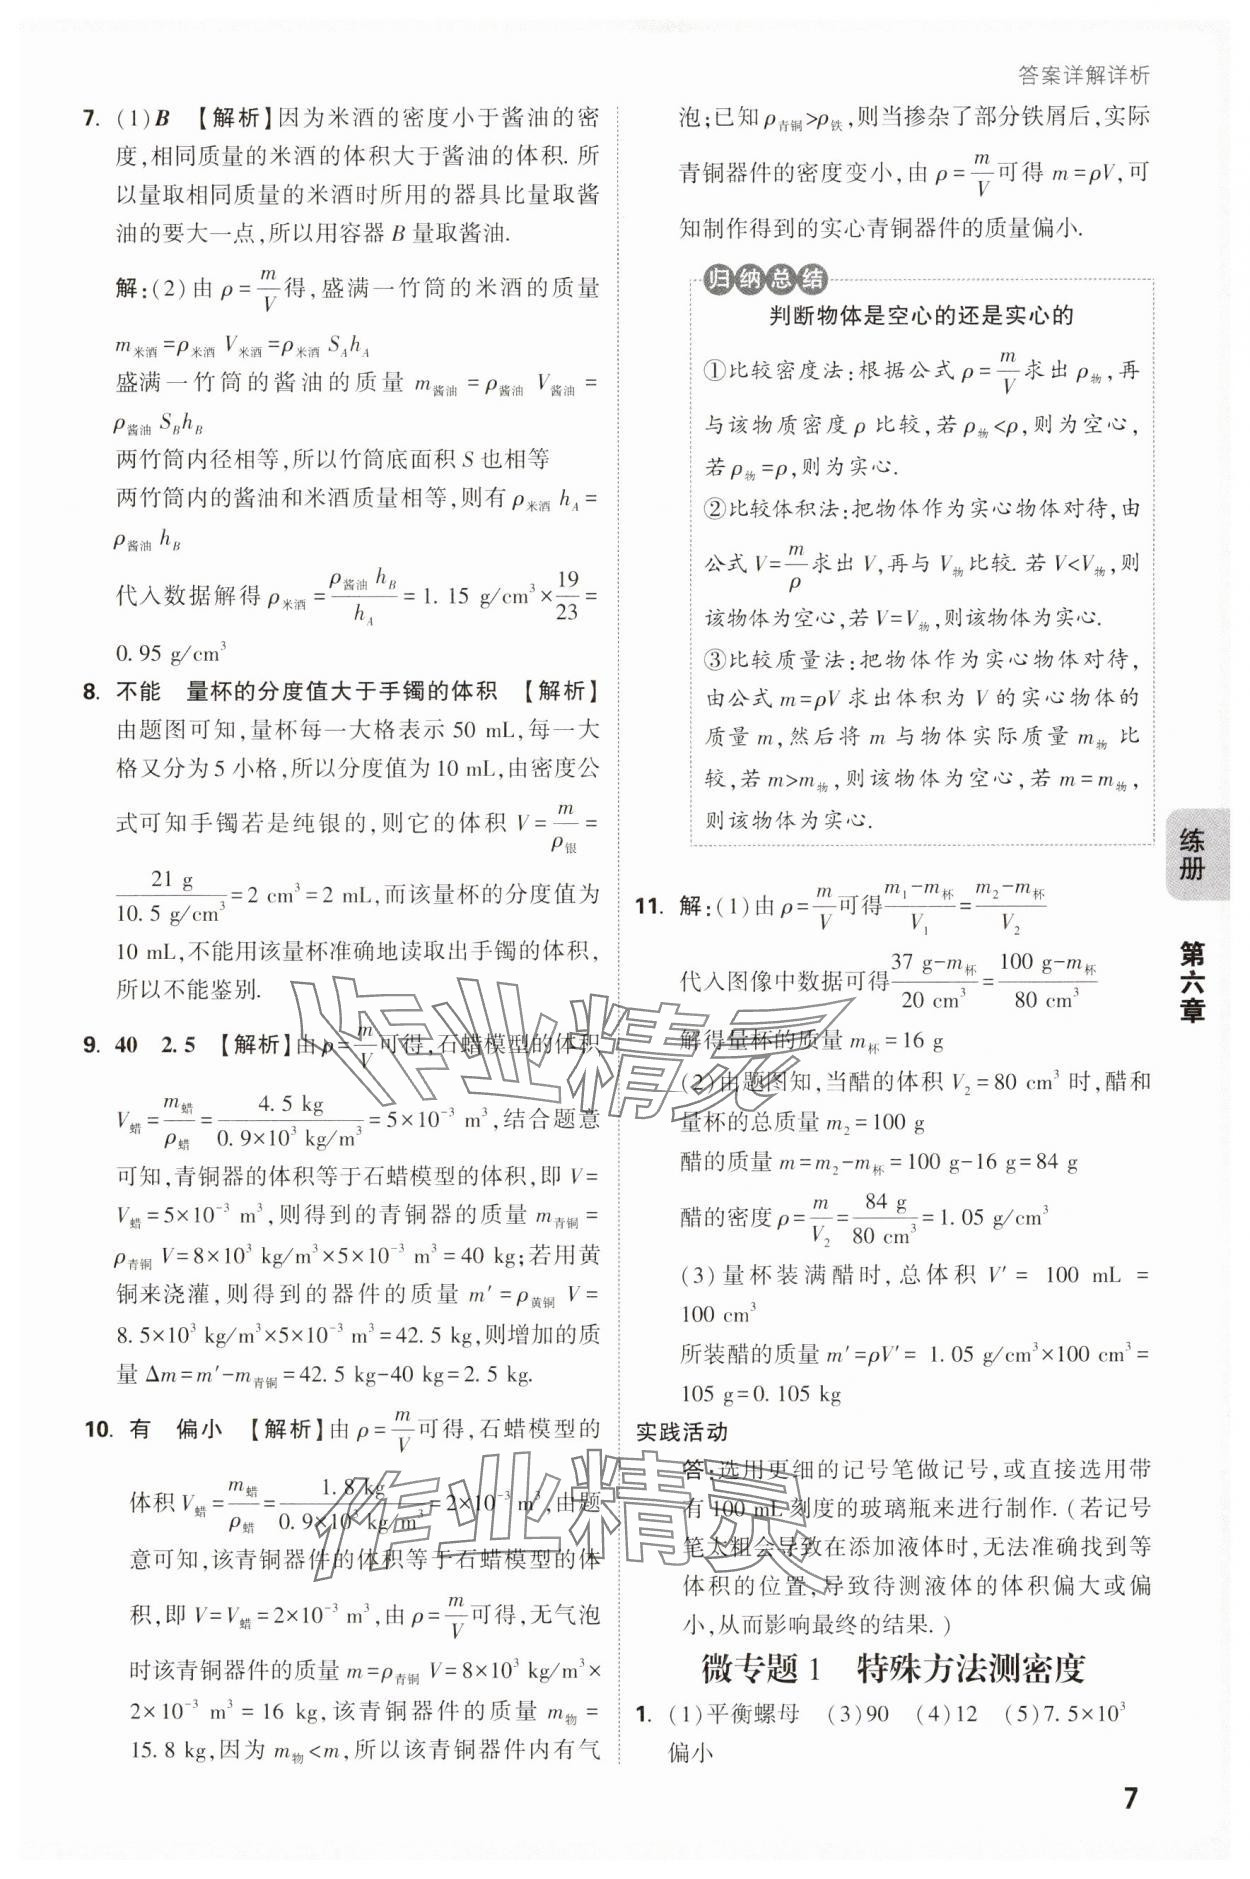 答案详解详析
7. (1)B 【解析】因为米酒的密度小于酱油的密
度,相同质量的米酒的体积大于酱油的体积. 所
以量取相同质量的米酒时所用的器具比量取酱
油的要大一点,所以用容器 B 量取酱油.
解:(2)由 ρ=m/V得,盛满一竹筒的米酒的质量
m米酒=ρ米酒 V米酒=ρ米酒 S_A h_A
盛满一竹筒的酱油的质量 m酱油=ρ酱油 V酱油=
ρ酱油 S_B h_B
两竹筒内径相等,所以竹筒底面积 S 也相等
两竹筒内的酱油和米酒质量相等,则有 ρ米酒 h_A=
ρ酱油 h_B
代入数据解得 ρ米酒=ρ酱油 h_B/h_A=1. 15 g/cm³×19/23=
0. 95 g/cm³
8. 不能 量杯的分度值大于手镯的体积 【解析】
由题图可知,量杯每一大格表示 50 mL,每一大
格又分为 5 小格,所以分度值为 10 mL,由密度公
式可知手镯若是纯银的,则它的体积 V=m/ρ银=
21 g/10. 5 g/cm³=2 cm³=2 mL,而该量杯的分度值为
10 mL,不能用该量杯准确地读取出手镯的体积,
所以不能鉴别.
9. 40 2. 5 【解析】由 ρ=m/V可得,石蜡模型的体积
V蜡=m蜡/ρ蜡=4. 5 kg/0. 9×10³ kg/m³=5×10⁻³ m³,结合题意
可知,青铜器的体积等于石蜡模型的体积,即 V=
V蜡=5×10⁻³ m³,则得到的青铜器的质量 m青铜=
ρ青铜 V=8×10³ kg/m³×5×10⁻³ m³=40 kg;若用黄
铜来浇灌,则得到的器件的质量 m′=ρ黄铜 V=
8. 5×10³ kg/m³×5×10⁻³ m³=42. 5 kg,则增加的质
量 Δm=m′-m青铜=42. 5 kg-40 kg=2. 5 kg.
10. 有 偏小 【解析】由 ρ=m/V可得,石蜡模型的
体积 V蜡=m蜡/ρ蜡=1. 8 kg/0. 9×10³ kg/m³=2×10⁻³ m³,由题
意可知,该青铜器件的体积等于石蜡模型的体
积,即 V=V蜡=2×10⁻³ m³,由 ρ=m/V可得,无气泡
时该青铜器件的质量 m=ρ青铜 V=8×10³ kg/m³×
2×10⁻³ m³=16 kg,该青铜器件的质量 m物=
15. 8 kg,因为 m物<m,所以该青铜器件内有气
泡;已知 ρ青铜>ρ铁,则当掺杂了部分铁屑后,实际
青铜器件的密度变小,由 ρ=m/V可得 m=ρV,可
知制作得到的实心青铜器件的质量偏小.
归纳总结
判断物体是空心的还是实心的
①比较密度法:根据公式 ρ=m/V求出 ρ物,再
与该物质密度 ρ 比较,若 ρ物<ρ,则为空心,
若 ρ物=ρ,则为实心.
②比较体积法:把物体作为实心物体对待,由
公式 V=m/ρ求出 V,再与 V物比较. 若 V<V物,则
该物体为空心,若 V=V物,则该物体为实心.
③比较质量法:把物体作为实心物体对待,
由公式 m=ρV 求出体积为 V 的实心物体的
质量 m,然后将 m 与物体实际质量 m物 比
较,若 m>m物,则该物体为空心,若 m=m物,
则该物体为实心.
11. 解:(1)由 ρ=m/V可得(m₁-m杯)/V₁=(m₂-m杯)/V₂
代入图像中数据可得(37 g-m杯)/20 cm³=(100 g-m杯)/80 cm³
解得量杯的质量 m杯=16 g
(2)由题图知,当醋的体积 V₂=80 cm³ 时,醋和
量杯的总质量 m₂=100 g
醋的质量 m=m₂-m杯=100 g-16 g=84 g
醋的密度 ρ=m/V₂=84 g/80 cm³=1. 05 g/cm³
(3)量杯装满醋时,总体积 V′= 100 mL =
100 cm³
所装醋的质量 m′=ρV′= 1. 05 g/cm³×100 cm³=
105 g=0. 105 kg
实践活动
答:选用更细的记号笔做记号,或直接选用带
有 100 mL 刻度的玻璃瓶来进行制作. (若记号
笔太粗会导致在添加液体时,无法准确找到等
体积的位置,导致待测液体的体积偏大或偏
小,从而影响最终的结果. )
微专题 1 特殊方法测密度
1. (1)平衡螺母 (3)90 (4)12 (5)7. 5×10³
偏小
练册
第六章
7
作业精灵
作业精灵